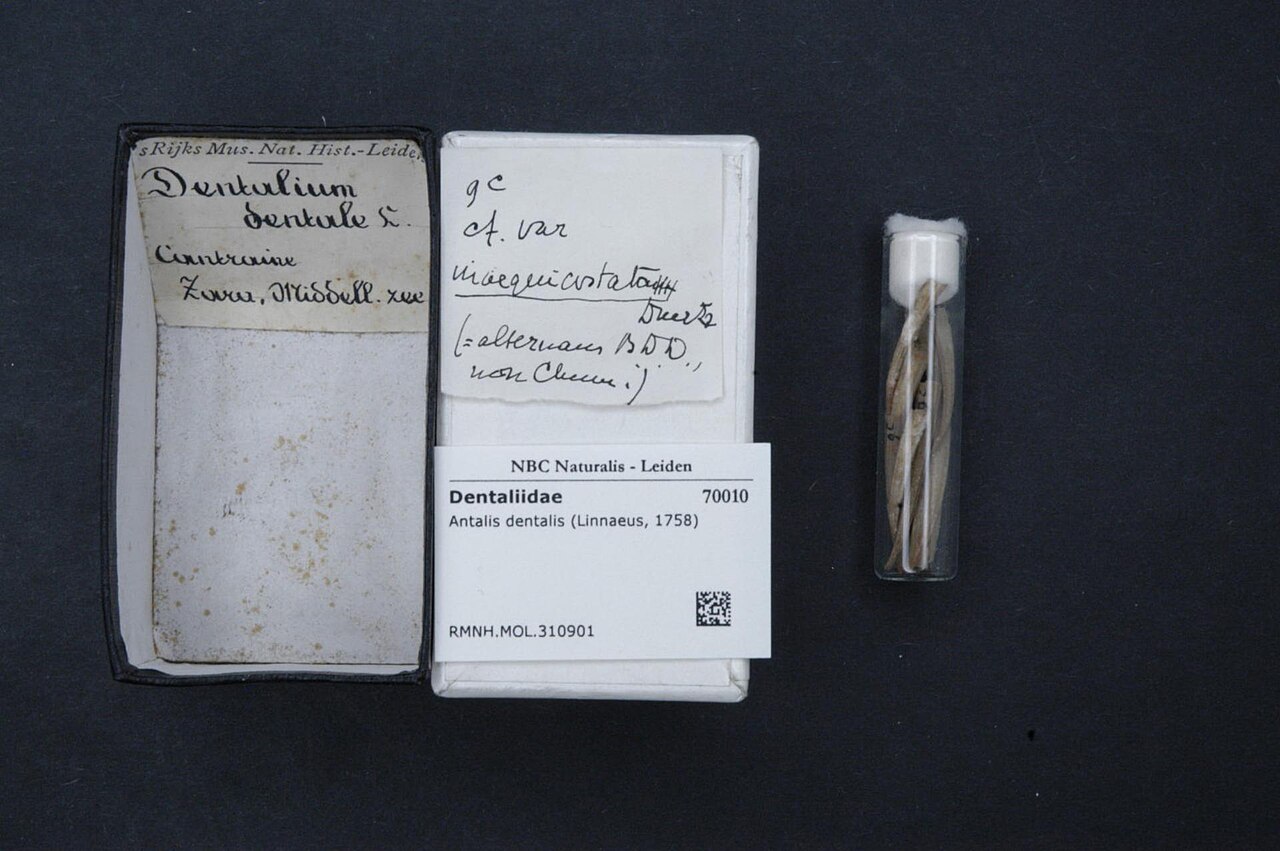 s Rijks Mus. Nat. Hist.-Leide
Dentalium
dentale L.
Cantraine
Zara, Middell. zee
gc
cf. var
inaequicostata
(= alternans B D D.,
non Chenu.)
NBC Naturalis - Leiden
Dentaliidae 70010
Antalis dentalis (Linnaeus, 1758)
RMNH.MOL.310901
gc
gc